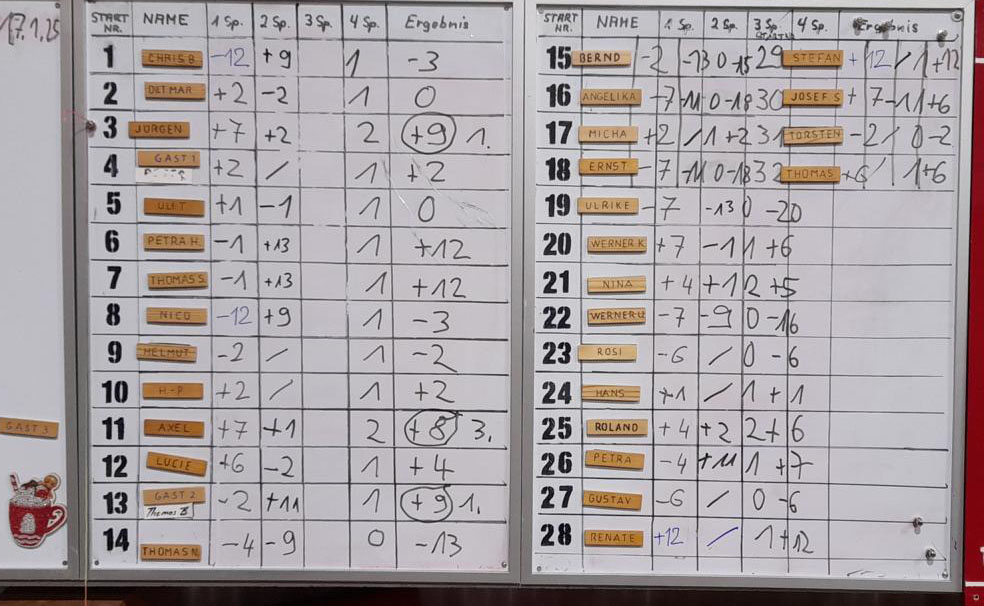 17.1.25
START NR. NAME 1 Sp. 2 Sp. 3 Sp. 4 Sp. Ergebnis
1 CHRIS B. -12 +9 1 -3
2 DITMAR +2 -2 1 0
3 JÜRGEN +7 +2 2 +9 1.
4 GAST 1 +2 / 1 +2
5 ULI T +1 -1 1 0
6 PETRA H. -1 +13 1 +12
7 THOMAS S -1 +13 1 +12
8 NICO -12 +9 1 -3
9 HELMUT -2 / 1 -2
10 H.-P +2 / 1 +2
11 AXEL +7 +1 2 +8 3.
12 LUCIE +6 -2 1 +4
13 GAST 2 Thomas B -2 +11 1 +9 1.
14 THOMAS N. -4 -9 0 -13
GAST 3
START NR. NAME 1 Sp. 2 Sp. 3 Sp. 4 Sp. Ergebnis
15 BERND -2 -13 0 -15 29 STEFAN +12 / 1 +12
16 ANGELIKA -7 -11 0 -18 30 JOSEF S +7 -1 1 +6
17 MICHA +2 / 1 +2 31 TORSTEN -2 / 0 -2
18 ERNST -7 -11 0 -18 32 THOMAS +6 / 1 +6
19 ULRIKE -7 -13 0 -20
20 WERNER K +7 -1 1 +6
21 NINA +4 +1 2 +5
22 WERNER U -7 -9 0 -16
23 ROSI -6 / 0 -6
24 HANS +1 / 1 +1
25 ROLAND +4 +2 2 +6
26 PETRA -4 +11 1 +7
27 GUSTAV -6 / 0 -6
28 RENATE +12 / 1 +12